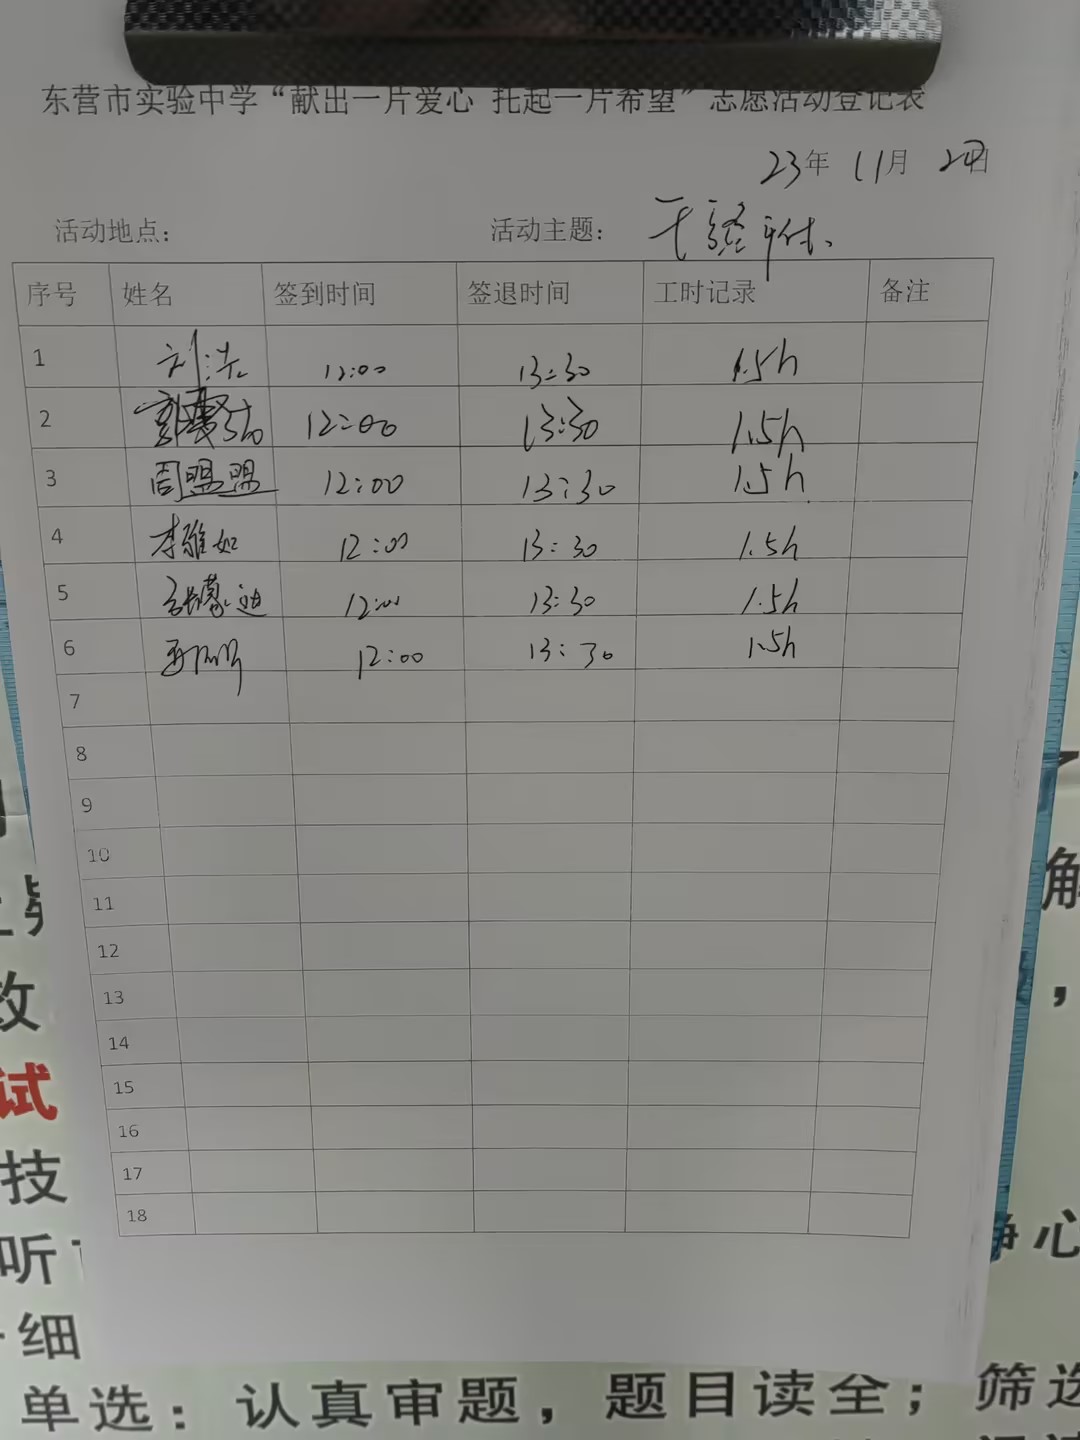 东营市实验中学“献出一片爱心 托起一片希望”志愿活动登记表
23年 11月 日
活动地点： 活动主题：
序号 姓名 签到时间 签退时间 工时记录 备注
1 刘洁 12:00 13:30 1.5h
2 12:00 13:30 1.5h
3 周盟盟 12:00 13:30 1.5h
4 李雅如 12:00 13:30 1.5h
5 12:00 13:30 1.5h
6 12:00 13:30 1.5h
7
8
9
10
11
12
13
14
15
16
17
18
解
效
，
试
技
听
静心
细
单选：认真审题，题目读全；筛选